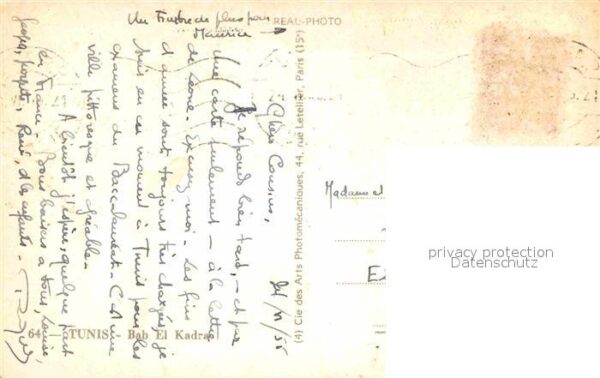 Un timbre de plus pour
Maurice
REAL-PHOTO
Chers Cousins,
Je réponds bien tard, - et par
une carte seulement - à la lettre
de Léone. Excusez-moi. Les fins
d'année sont toujours très chargées, je
suis en ce moment à Tunis pour les
examens du Baccalauréat. C'est une
ville pittoresque et agréable.
A bientôt j'espère, quelque part
en France. Bons baisers à tous, Louise,
René, et les enfants -
(4) Cie des Arts Photomécaniques, 44, rue Letellier, Paris (15e)
Madame et
privacy protection
Datenschutz
64 - TUNIS - Bab El Kadra